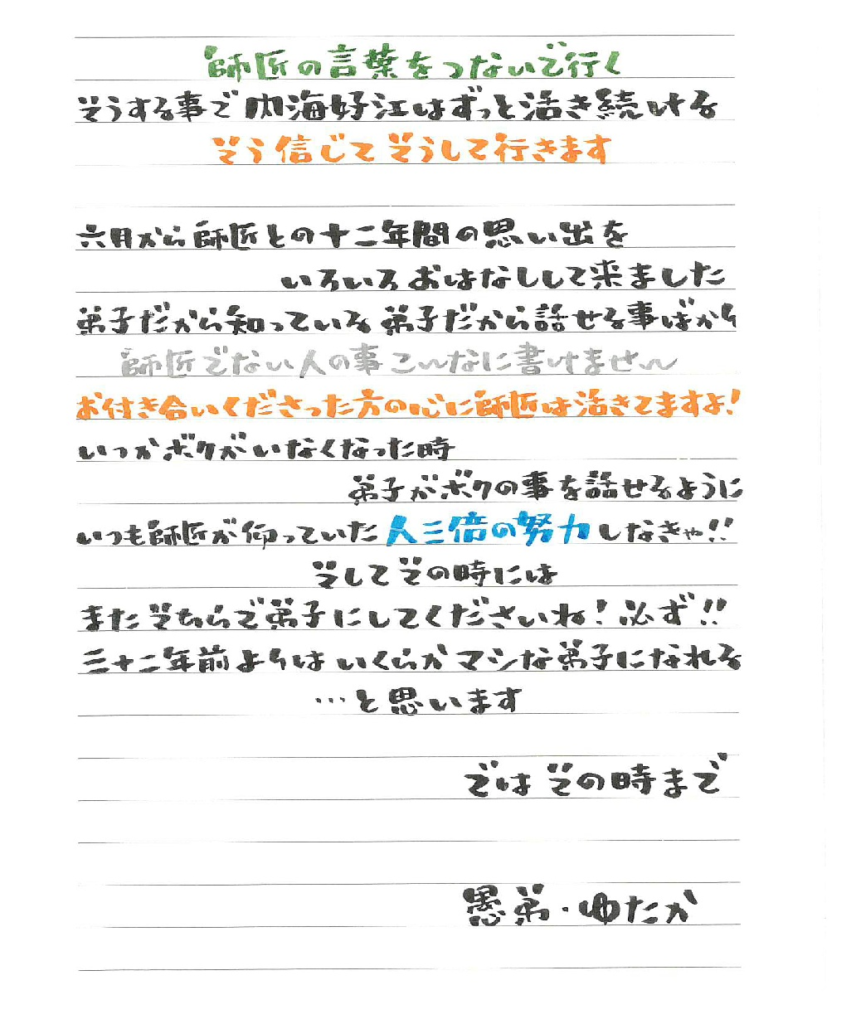 師匠の言葉をつないで行く
そうする事で内海好江はずっと活き続ける
そう信じてそうして行きます
六月から師匠との十二年間の思い出を
いろいろおはなしして来ました
弟子だから知っている弟子だから話せる事ばかり
師匠でない人の事こ〜なに書けませ〜
お付き合いくださった方の心に師匠は活きてますよ!
いつかボクがいなくなった時
弟子がボクの事を話せるように
いつも師匠が仰っていた人三倍の努力しなきゃ!!
そしてその時には
またそちらで弟子にしてくださいね!必ず!!
三十二年前よりはいくらかマシな弟子になれる
…と思います
ではその時まで
愚弟・ゆたか